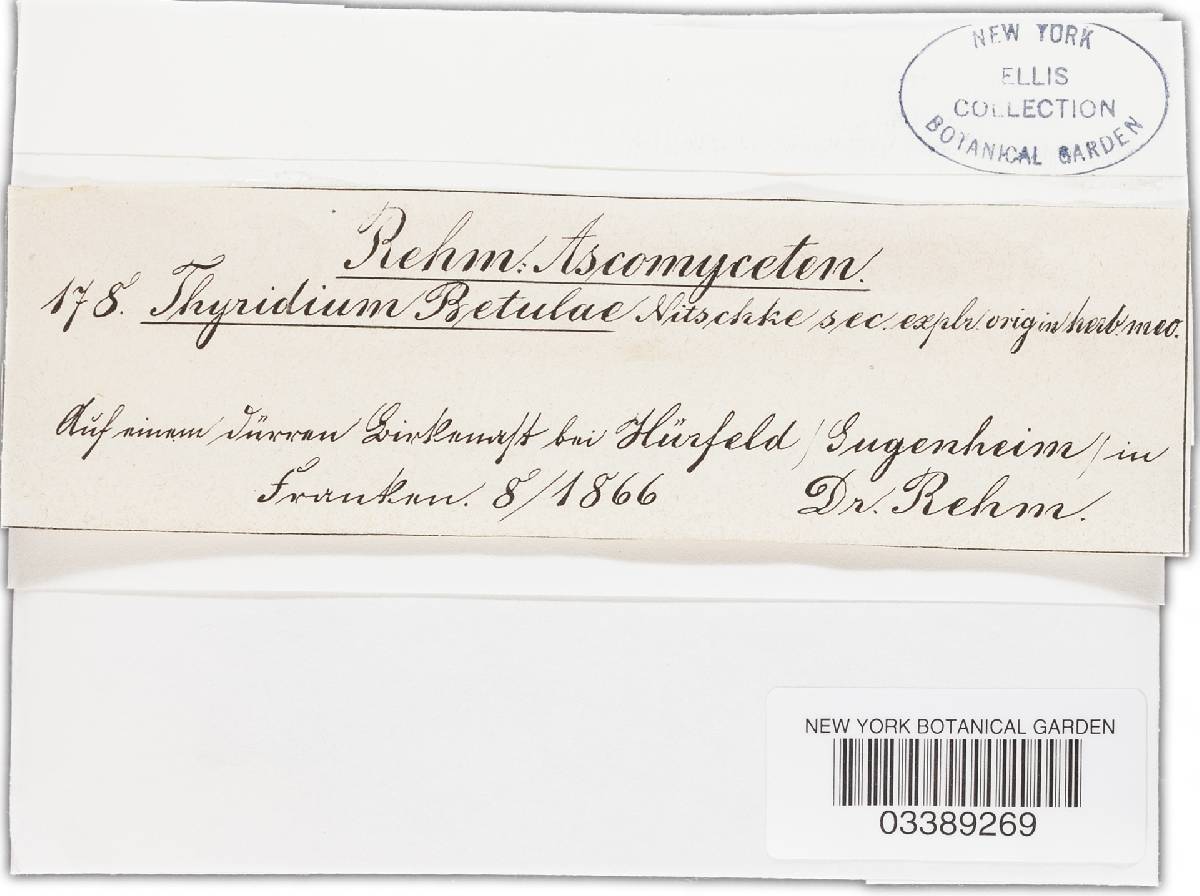 NEW YORK
ELLIS
COLLECTION
BOTANICAL GARDEN
Rehm: Ascomyceten.
178. Thyridium Betulae Nitschke sec. explr. origin herb. meo.
Auf einem dürren Birkenast bei Hürfeld / Sugenheim / in
Franken. 8/1866 Dr. Rehm.
NEW YORK BOTANICAL GARDEN
03389269